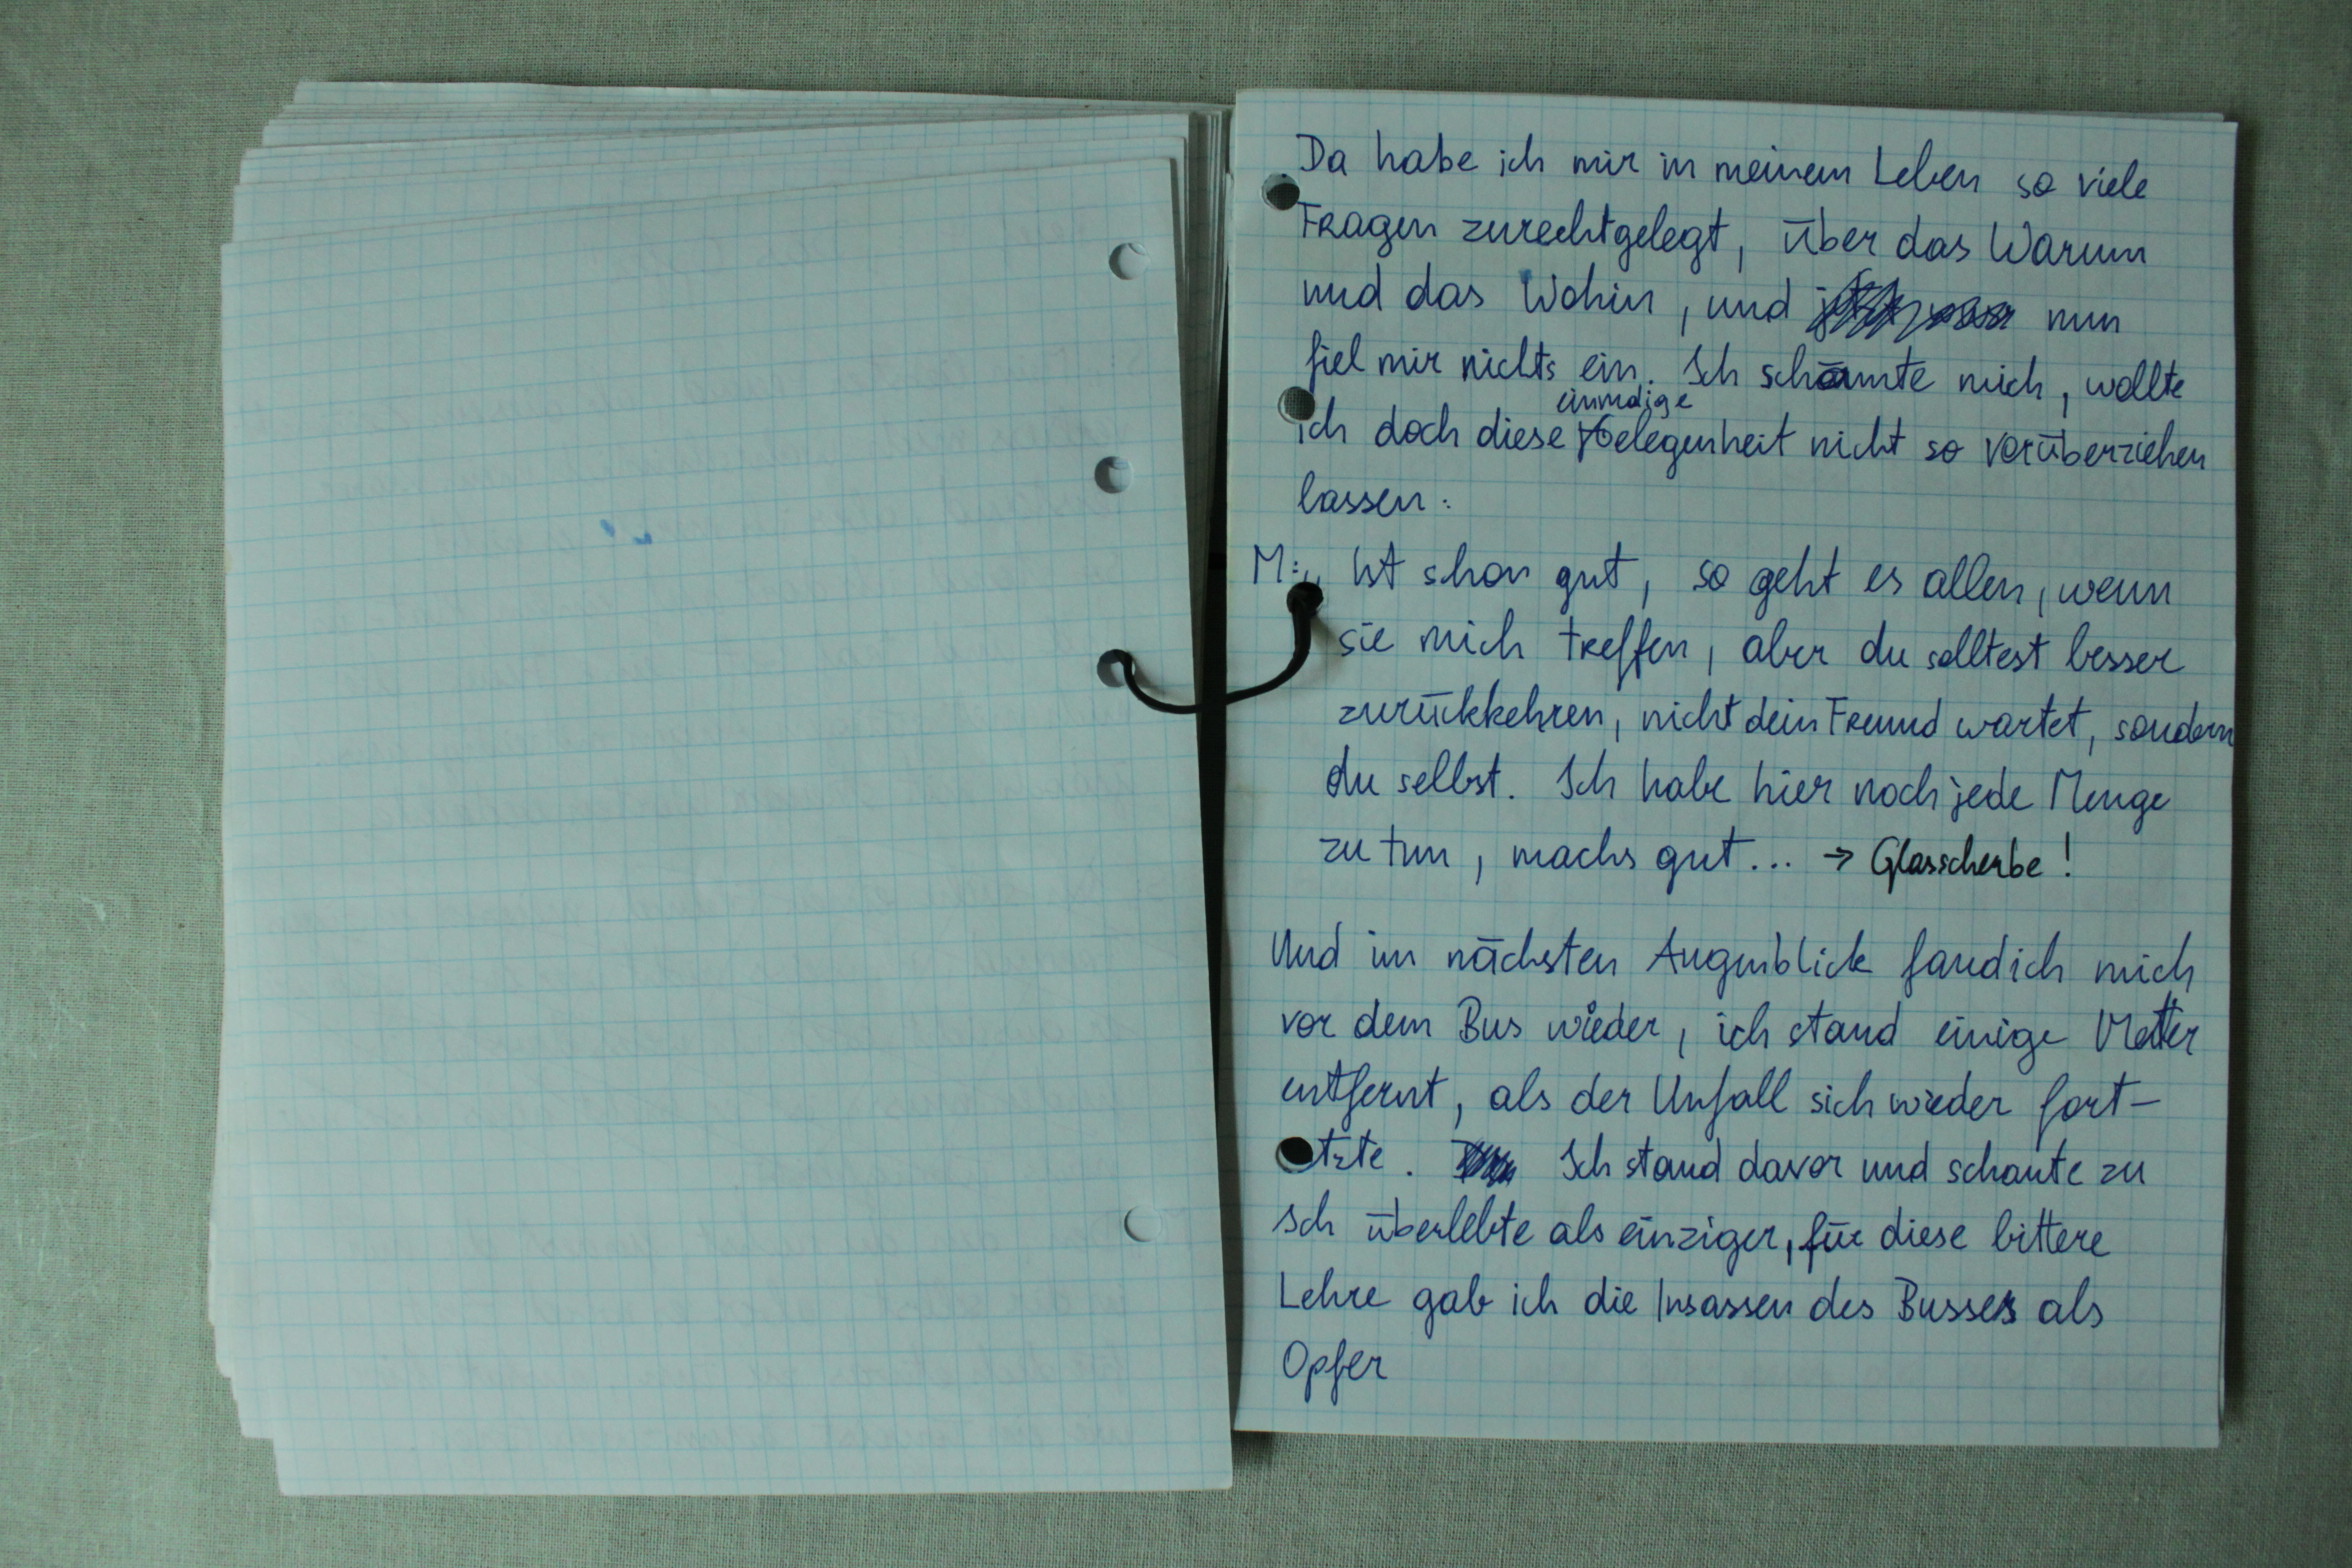 Da habe ich mir in meinem Leben so viele
Fragen zurechtgelegt, über das Warum
und das Wohin, und nun
fiel mir nichts ein. Ich schämte mich, wollte
einmalige
ich doch diese Gelegenheit nicht so vorüberziehen
lassen:
M: „ Ist schon gut, so geht es allen, wenn
sie mich treffen, aber du solltest besser
zurückkehren, nicht dein Freund wartet, sondern
du selbst. Ich habe hier noch jede Menge
zu tun, machs gut... → Glasscherbe!
Und im nächsten Augenblick fand ich mich
vor dem Bus wieder, ich stand einige Meter
entfernt, als der Unfall sich wieder fort-
tzte. Ich stand davor und schaute zu
Ich überlebte als einziger, für diese bittere
Lehre gab ich die Insassen des Busses als
Opfer